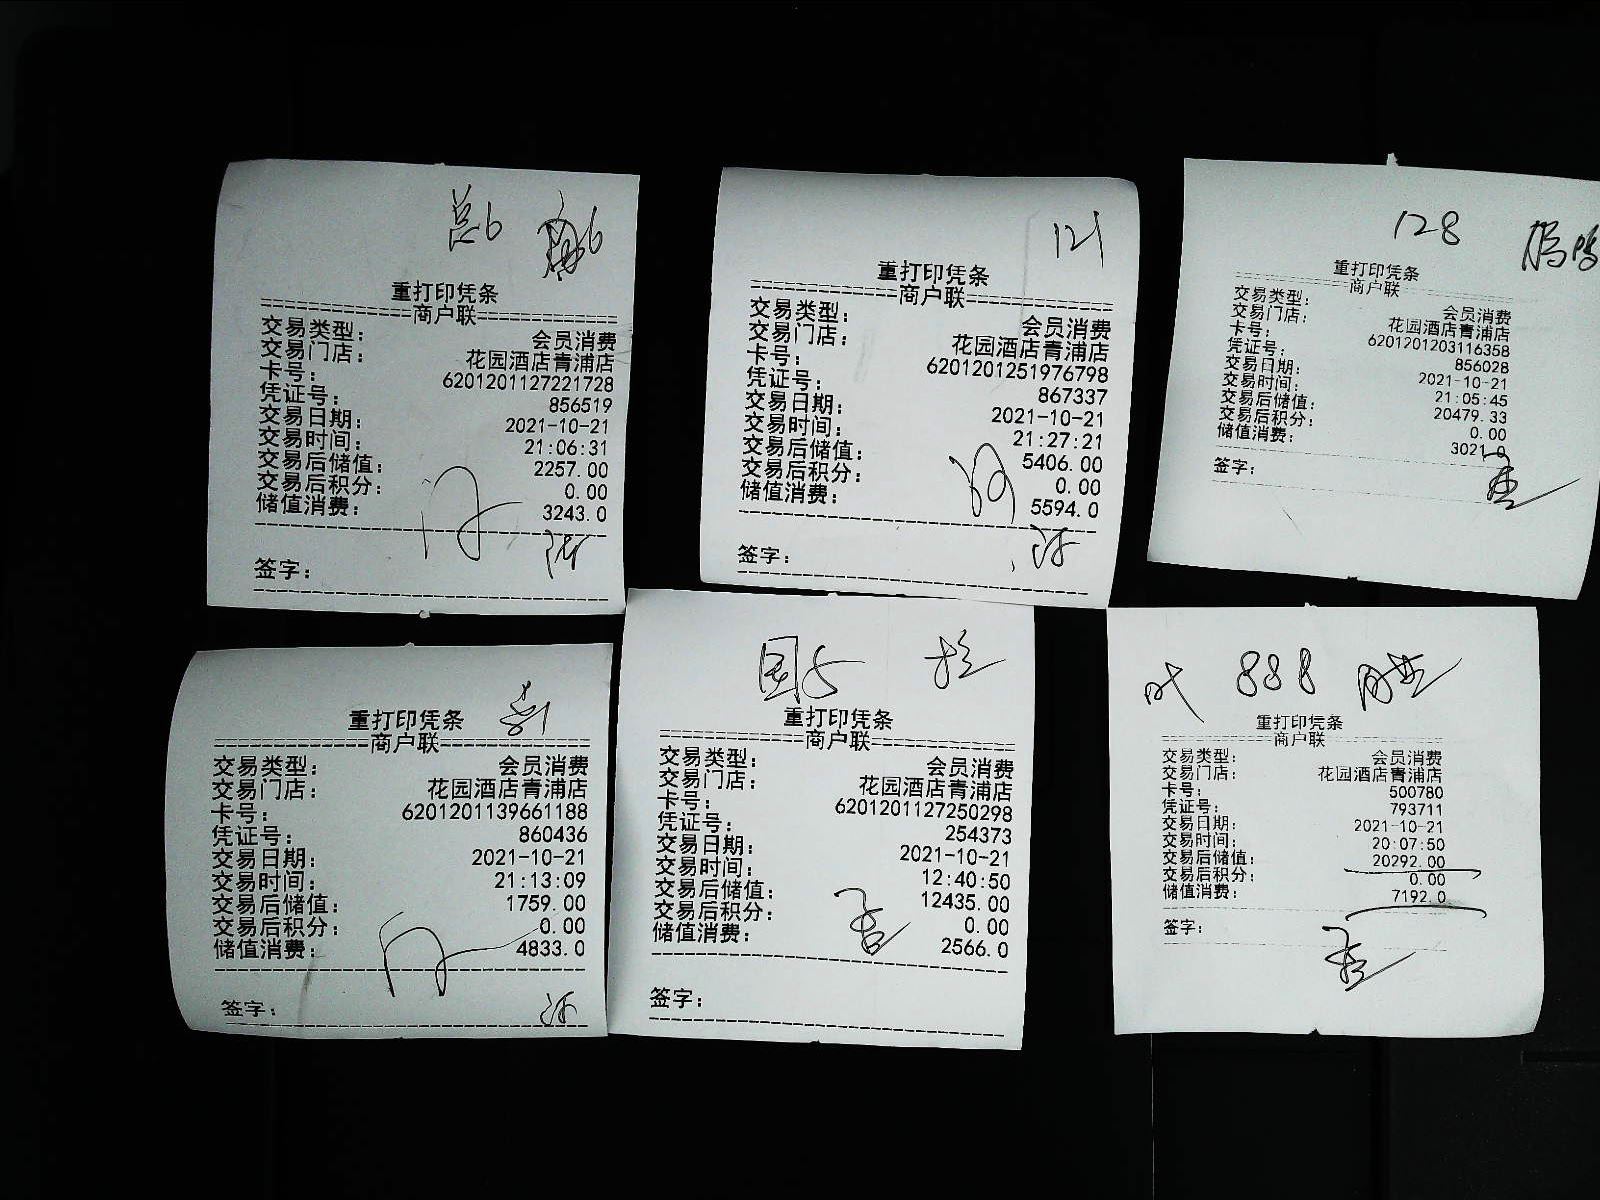 总6
重打印凭条
商户联
交易类型： 会员消费
交易门店： 花园酒店青浦店
卡号： 6201201127221728
凭证号： 856519
交易日期： 2021-10-21
交易时间： 21:06:31
交易后储值： 2257.00
交易后积分： 0.00
储值消费： 3243.0
签字：
121
重打印凭条
商户联
交易类型： 会员消费
交易门店： 花园酒店青浦店
卡号： 6201201251976798
凭证号： 867337
交易日期： 2021-10-21
交易时间： 21:27:21
交易后储值： 5406.00
交易后积分： 0.00
储值消费： 5594.0
签字：
128
重打印凭条
商户联
交易类型： 会员消费
交易门店： 花园酒店青浦店
卡号： 6201201203116358
凭证号： 856028
交易日期： 2021-10-21
交易时间： 21:05:45
交易后储值： 20479.33
交易后积分： 0.00
储值消费： 3021.0
签字：
重打印凭条
商户联
交易类型： 会员消费
交易门店： 花园酒店青浦店
卡号： 6201201139661188
凭证号： 860436
交易日期： 2021-10-21
交易时间： 21:13:09
交易后储值： 1759.00
交易后积分： 0.00
储值消费： 4833.0
签字：
重打印凭条
商户联
交易类型： 会员消费
交易门店： 花园酒店青浦店
卡号： 6201201127250298
凭证号： 254373
交易日期： 2021-10-21
交易时间： 12:40:50
交易后储值： 12435.00
交易后积分： 0.00
储值消费： 2566.0
签字：
叶 888
重打印凭条
商户联
交易类型： 会员消费
交易门店： 花园酒店青浦店
卡号： 500780
凭证号： 793711
交易日期： 2021-10-21
交易时间： 20:07:50
交易后储值： 20292.00
交易后积分： 0.00
储值消费： 7192.0
签字：